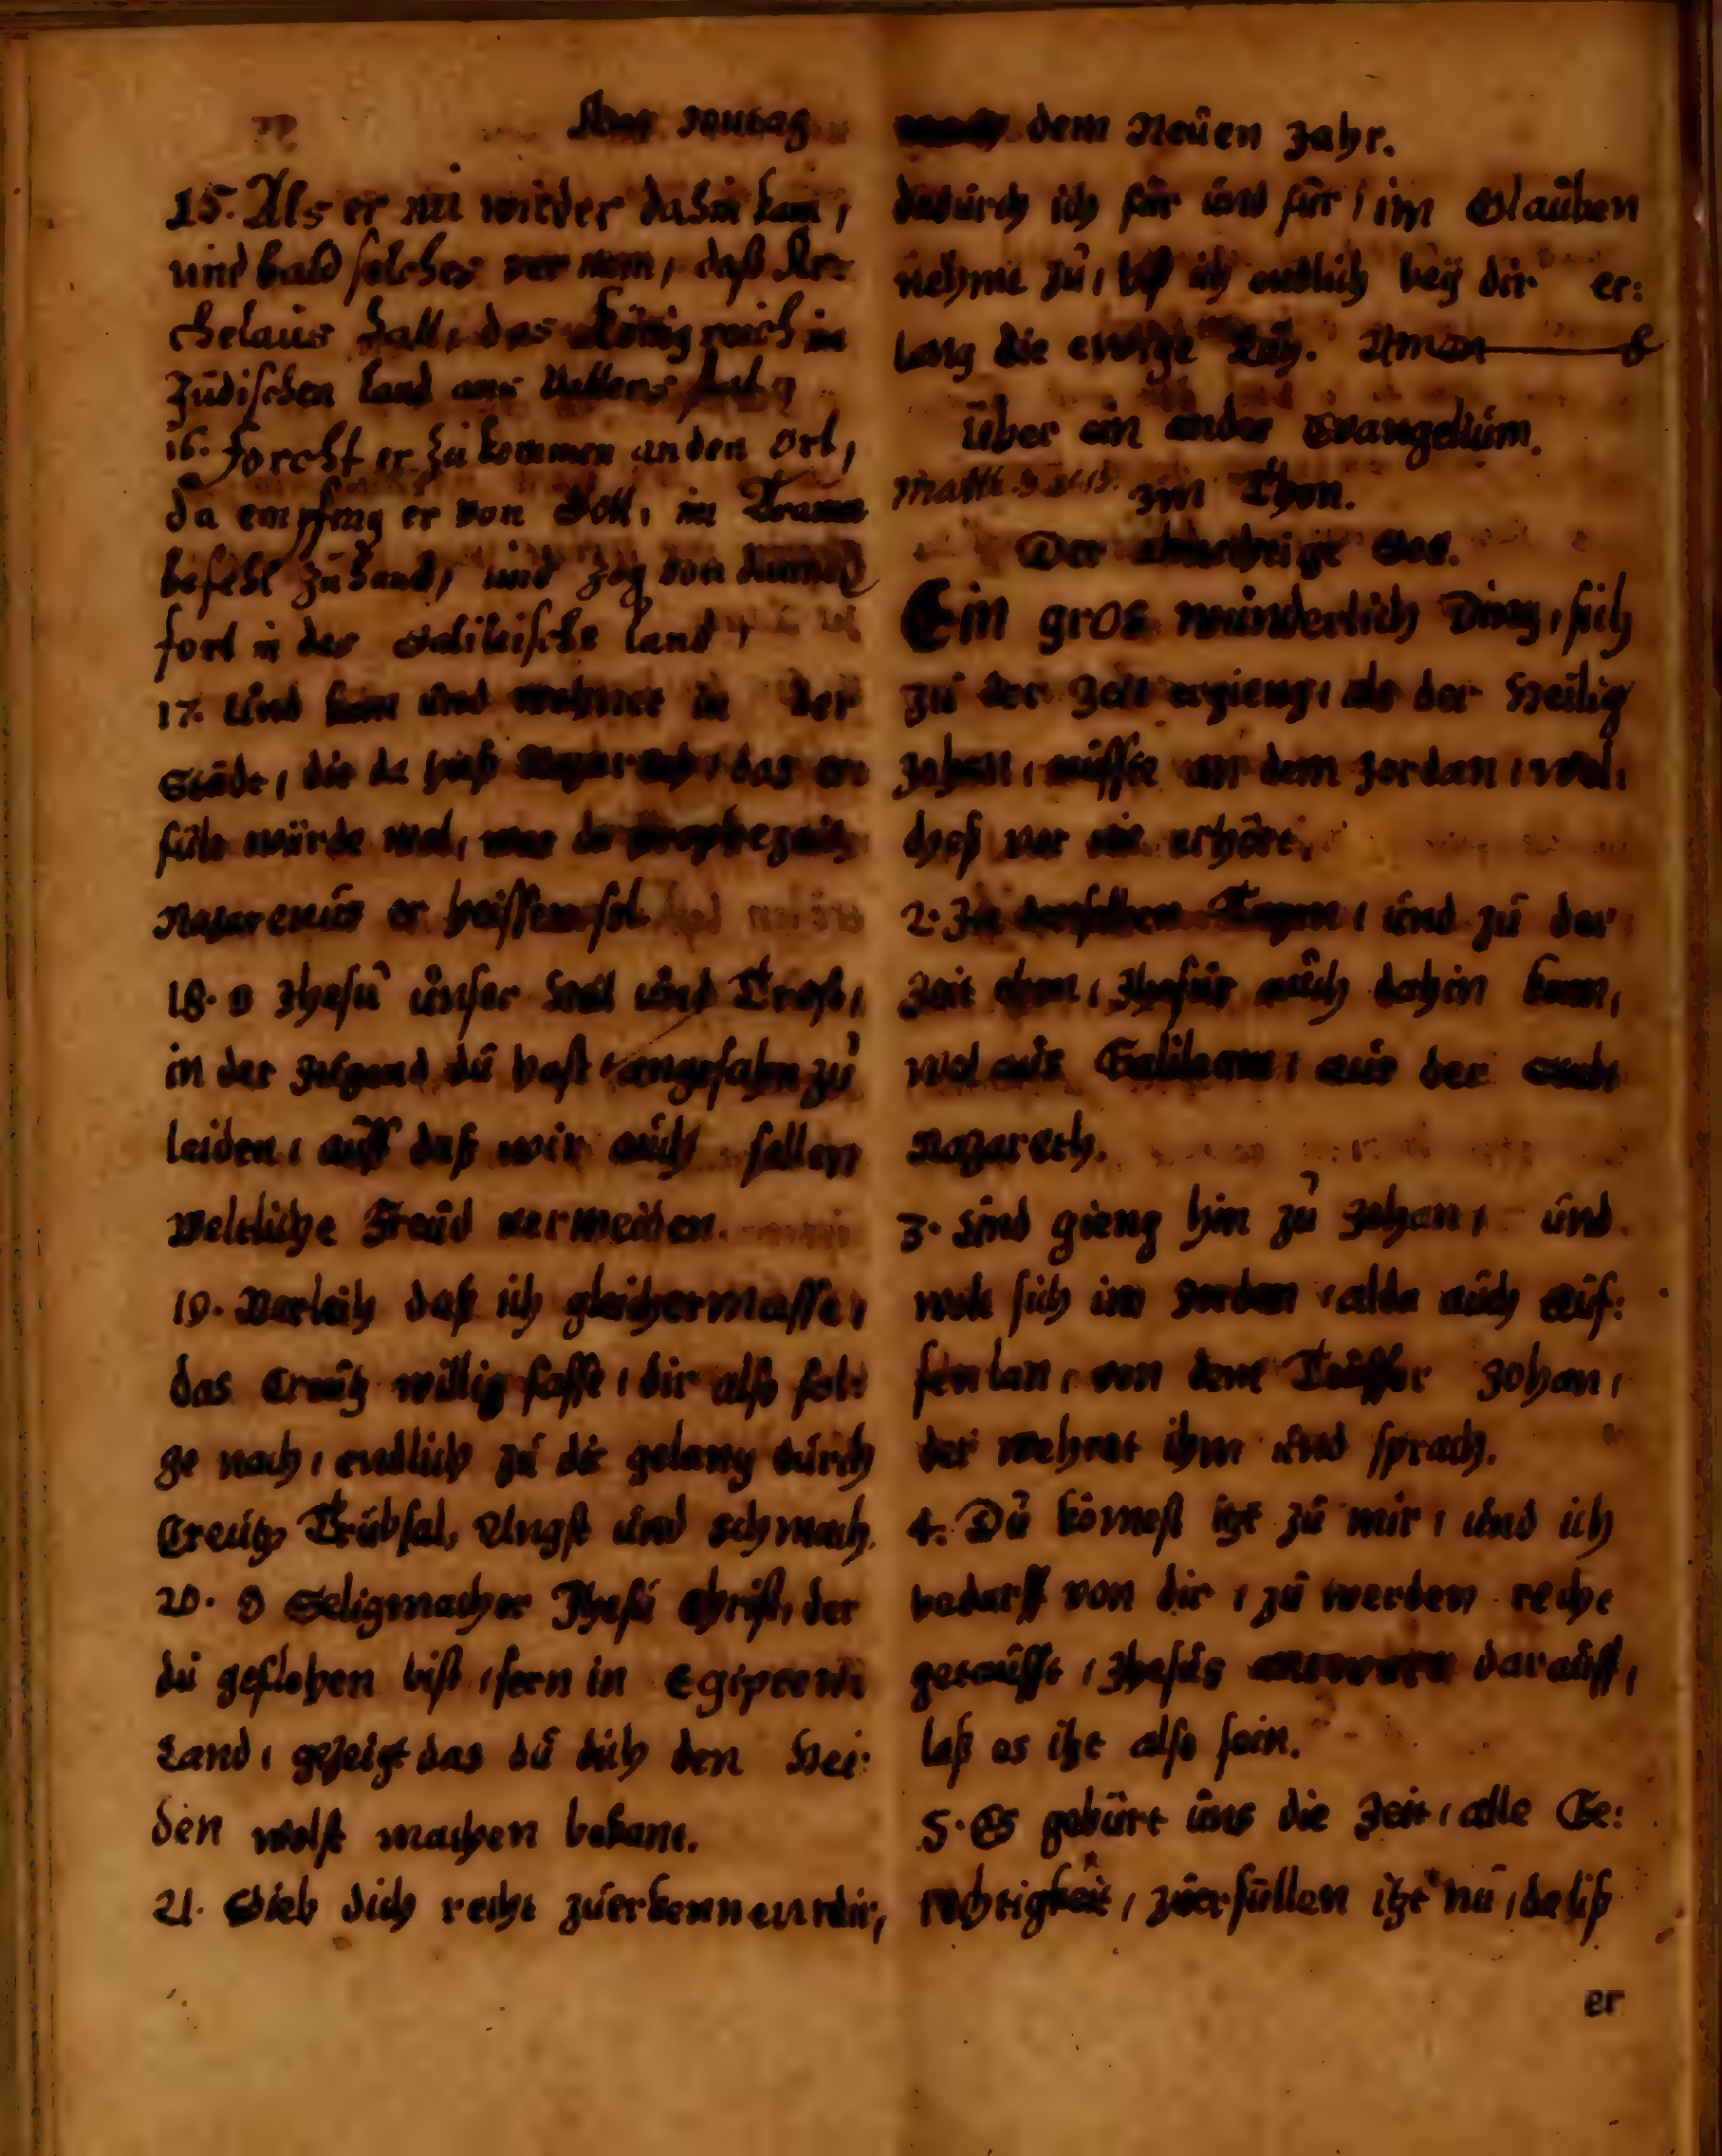 Am Sontag
15. Als er nu wieder dahin kam,
und bald solches ver nam, daß Ar=
chelaus hatt, das Königreich im
Jüdischen land
16. Forcht er zu kommen an den ort,
da empfing er von Gott, im Traum
befehl zu hand, und zog von
fort in das Galileische land,
17. Und kam und wohnet in der
Städt, die da hieß Nazareth, das er
fült würde wol, was da prophezeit
Nazarenus er heissen sol
18. O Jhesu unser heil und Trost,
in der Jugend du hast angefahn zu
leiden, auff daß wir auch sollen
Weltliche Freud vermeiden.
19. Verleih daß ich gleichermasse,
das Creutz willig fasse, dir also fol:
ge nach, endlich zu dir gelang durch
Creutz, Trübsal, Angst und schmach.
20. O Seligmacher Jhesu Christ, der
du geflohen bist, fern in Egipten
Land, gezeigt das du dich den Hei:
den wolst machen bekant.
21. Gieb dich recht zuerkennen mir,
nach dem Neuen Jahr.
dadurch ich für und für, im Glauben
nehme zu, biß ich endlich bey dir er:
lang die ewige Ruh. Amen
Über ein ander Evangelium.
Matth im Thon.
Der almechtige Got.
Ein gros wunderlich Ding, sich
zu der Zeit ergieng, als der Heilig
Johan, tauffte an dem Jordan, wel,
ches vor nie erhöret,
2. In denselben Tagen, und zu der
Zeit eben, Jhesus auch dahin kam,
wol aus Galilaea, aus der stadt
Nazareth.
3. Und gieng hin zu Johan, und
wolt sich im Jordan, alda auch auf:
fen lan, von dem Teuffer Johan,
der wehret ihm und sprach.
4. Du kömest itzt zu mir, und ich
bedarff von dir, zu werden recht
getaufft, Jhesus antwort darauff,
laß es itzt also sein.
5. Es gebürt uns die Zeit, alle Ge:
rechtigkeit, zuerfüllen itzt nu, da liß
er